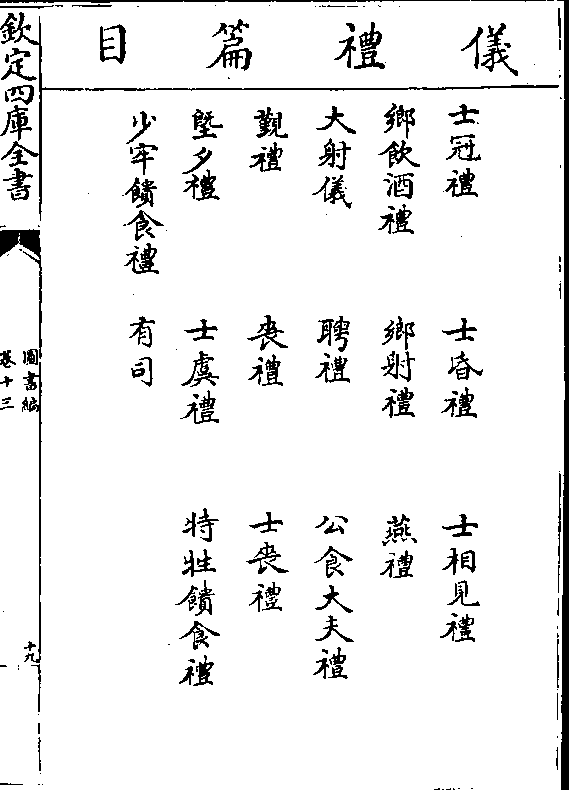 儀禮篇目
士冠禮　士昏禮　士相見禮
鄉飲酒禮　鄉射禮　燕禮
大射儀　聘禮　公食大夫禮
覲禮　喪禮　士喪禮
塈夕禮　士虞禮　特牲饋食禮
少牢饋食禮　有司
欽定四庫全書
圖書編
卷十三
十九